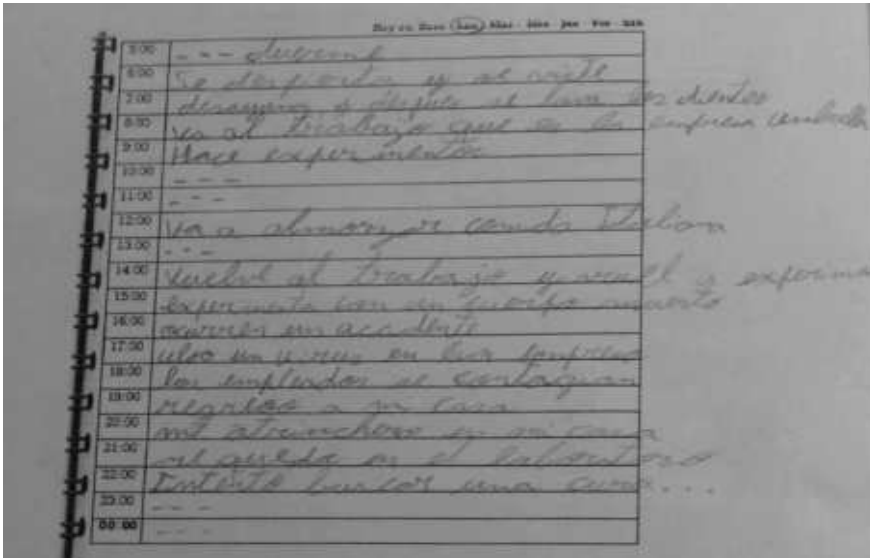 Hoy es: Dom (Lun) Mar Mie Jue Vie Sab
5:00 - - - duerme
6:00 Se despierta y se viste
7:00 desayuna y despues se lava los dientes
8:00 va al trabajo que es la empresa umbrella
9:00 Hace experimentos
10:00 - - -
11:00 - - -
12:00 va a almorzar comida Italiana
13:00 - - -
14:00 vuelve al trabajo y a
15:00 experimenta con un cuerpo muerto
16:00 ocurren un accidente
17:00 un virus en la empresa
18:00 los empleados se contagian
19:00 regreso a mi casa
20:00 me atrinchero en mi casa
21:00 me quedo en el laboratorio
22:00 Intento buscar una cura...
23:00 - - -
00:00 - - -